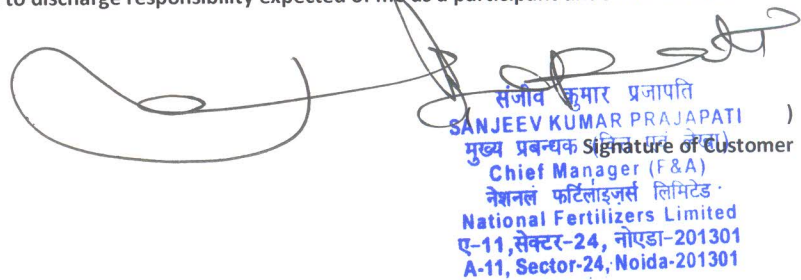 to discharge responsibility expected of me as a participant
संजीव कुमार प्रजापति
SANJEEV KUMAR PRAJAPATI )
मुख्य प्रबन्धक (वित्त एवं लेखा) Signature of Customer
Chief Manager (F&A)
नेशनल फर्टिलाइज़र्स लिमिटेड
National Fertilizers Limited
ए-11,सेक्टर-24, नोएडा-201301
A-11, Sector-24, Noida-201301